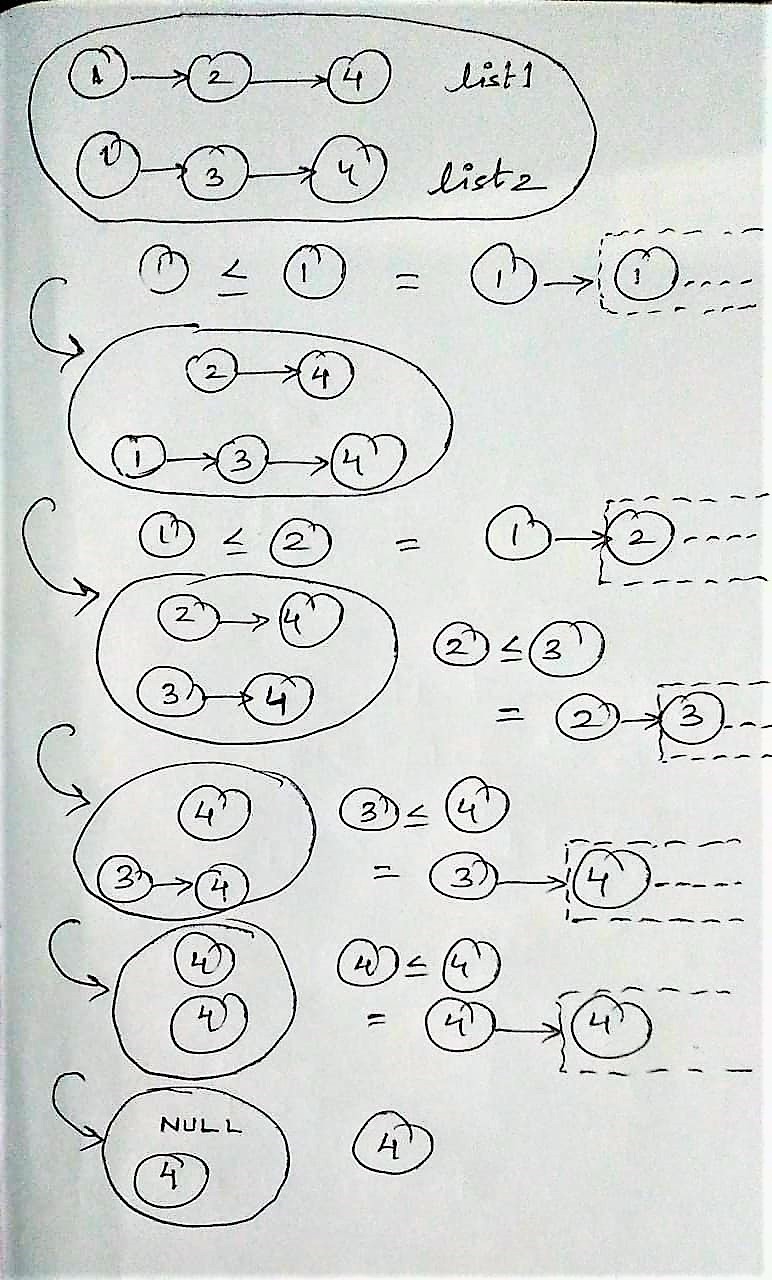 1 → 2 → 4 list1
1 → 3 → 4 list2
1 ≤ 1 = 1 → 1
2 → 4
1 → 3 → 4
1 ≤ 2 = 1 → 2
2 → 4 2 ≤ 3
3 → 4 = 2 → 3
4 3 ≤ 4
3 → 4 = 3 → 4
4 4 ≤ 4
4 = 4 → 4
NULL 4
4